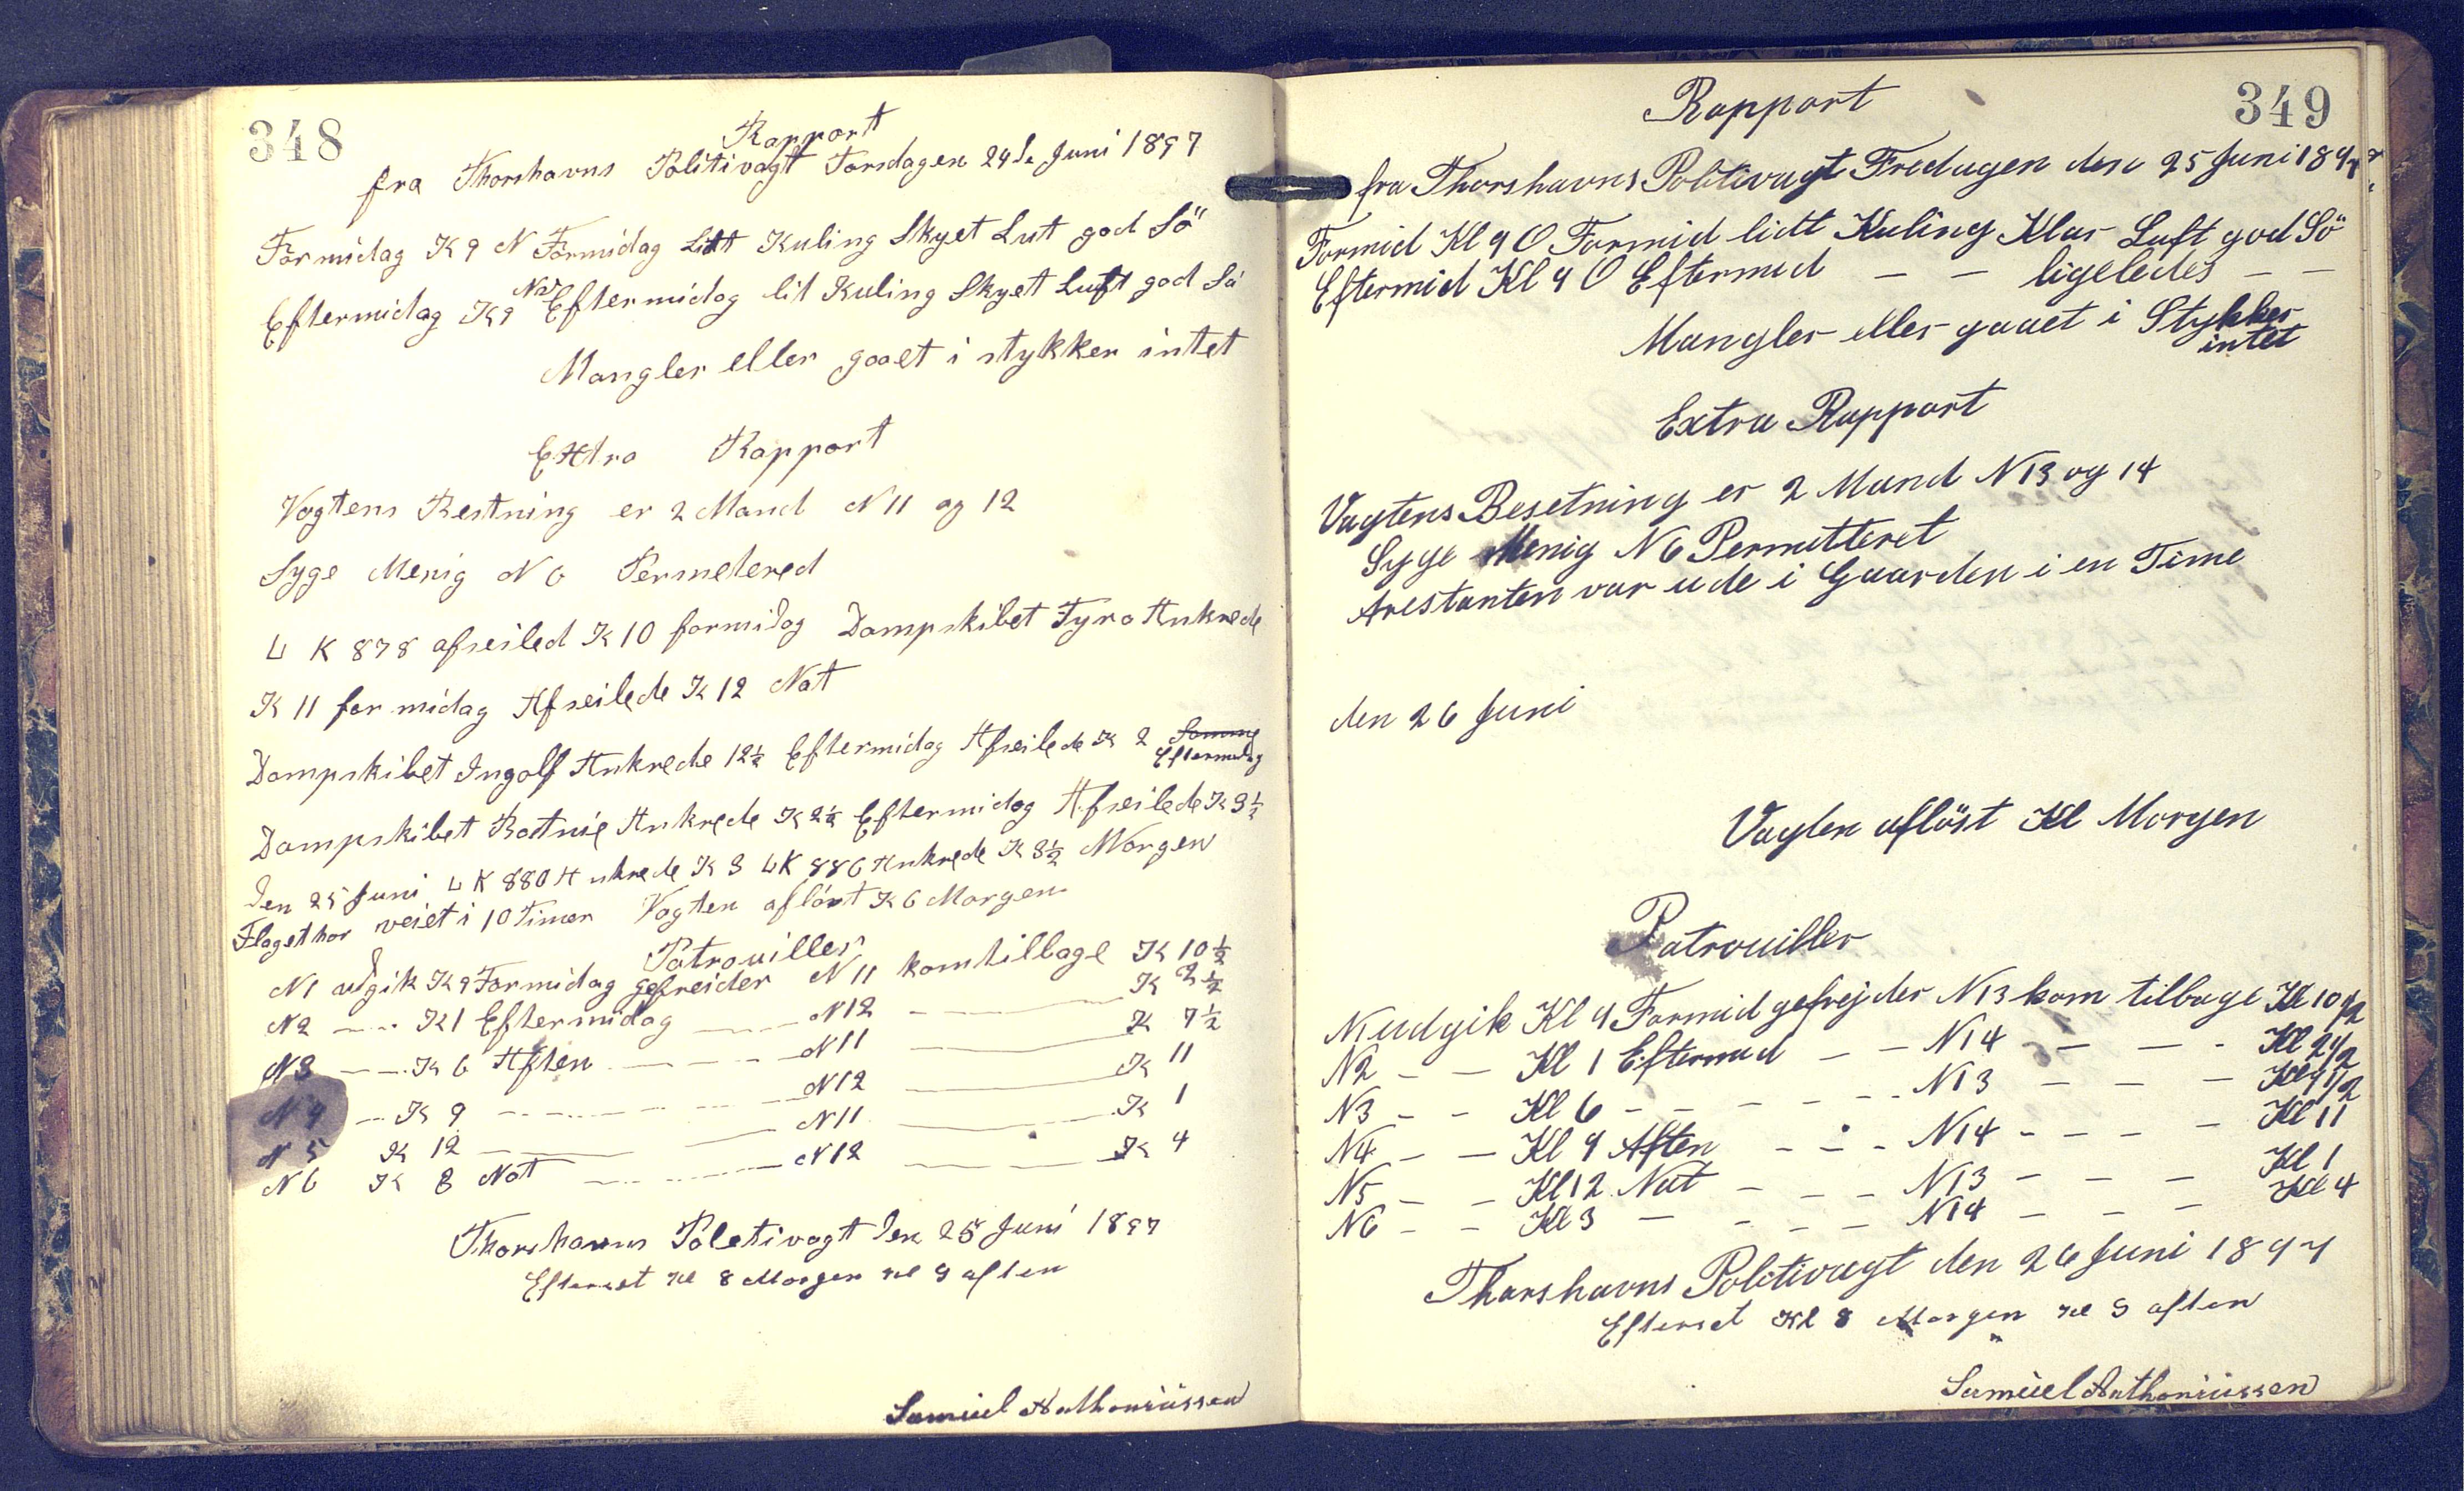 348
Rapport
fra Thorshavns Politivagt Torsdagen 24de Juni 1897
Formidag K 9 N Formidag Lidt Kuling Skyet Luft god Sö
Eftermidag K 9 NV Eftermidag lit Kuling Skyet Luft god Sö
Mangler eller gaaet i stykker intet
Extra Rapport
Vagtens Bestning er 2 Mand N 11 og 12
Syge Menig N 6 Permetered
LK 878 afseiled K 10 formidag Dampskibet Tyra Ankrede
K 11 formidag Afseilede K 12 Nat
Dampskibet Ingolf Ankrede 12½ Eftermidag Afseilede K 2
Eftermidag
Dampskibet Botnie Ankrede K 2½ Eftermidag Afseilede K 3½
den 25 Juni LK 880 Ankrede K 3 LK 886 Ankrede K 3½ Morgen
Flaget har veiet i 10 Timer Vagten aflöst K 6 Morgen
Patrouiller
N 1 udgik K 9 Formidag gefreider N 11 kom tilbage K 10½
N 2 — — K 1 Eftermidag — — N 12 — — K 2½
N 3 — — K 6 Aften — — N 11 — — K 7½
N 4 — K 9 — — N 12 — — K 11
N 5 K 12 — — N 11 — — K 1
N 6 K 3 Nat — — N 12 — — K 4
Thorshavns Poletivagt den 25 Juni 1897
Efterset Kl 8 Morgen Kl 9 aften
Samuel Anthoniussen
349
Rapport
fra Thorshavns Politivagt Fredagen den 25 Juni 1897
Formid Kl 9 O Formid lidt Kuling Klar Luft god Sö
Eftermid Kl 9 O Eftermid — — ligeledes — —
Mangler eller gaaet i Stykker
intet
Extra Rapport
Vagtens Besetning er 2 Mand N 13 og 14
Syge Menig N 6 Permitteret
Arestanten var ude i Gaarden i en Time
den 26 Juni
Vagten aflöst Kl Morgen
Patrouiller
N 1 udgik Kl 9 Formid gefrejder N 13 kom tilbage Kl 10 1/2
N 2 — — Kl 1 Eftermid — — N 14 — — — Kl 2 1/2
N 3 — — Kl 6 — — — — N 13 — — — Kl 7 1/2
N 4 — — Kl 9 Aften — — — N 14 — — — — Kl 11
N 5 — — Kl 12 Nat — — — N 13 — — — Kl 1
N 6 — — Kl 3 — — — — N 14 — — — Kl 4
Thorshavns Politivagt den 26 Juni 1897
Efterset Kl 8 Morgen Kl 9 aften
Samuel Anthoniussen